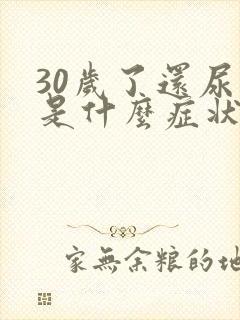 30歲了還尿
是什麼症狀
家無余粮的地